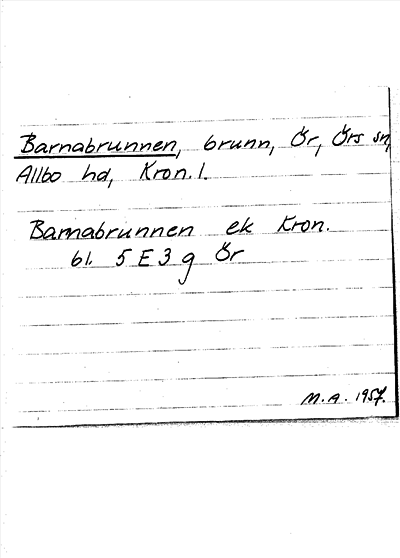 Barnabrunnen, brunn, Ör, Örs sn,
Allbo hd, Kron. l.
Barnabrunnen ek Kron.
bl. 5 E 3 g Ör
M.A. 1957.